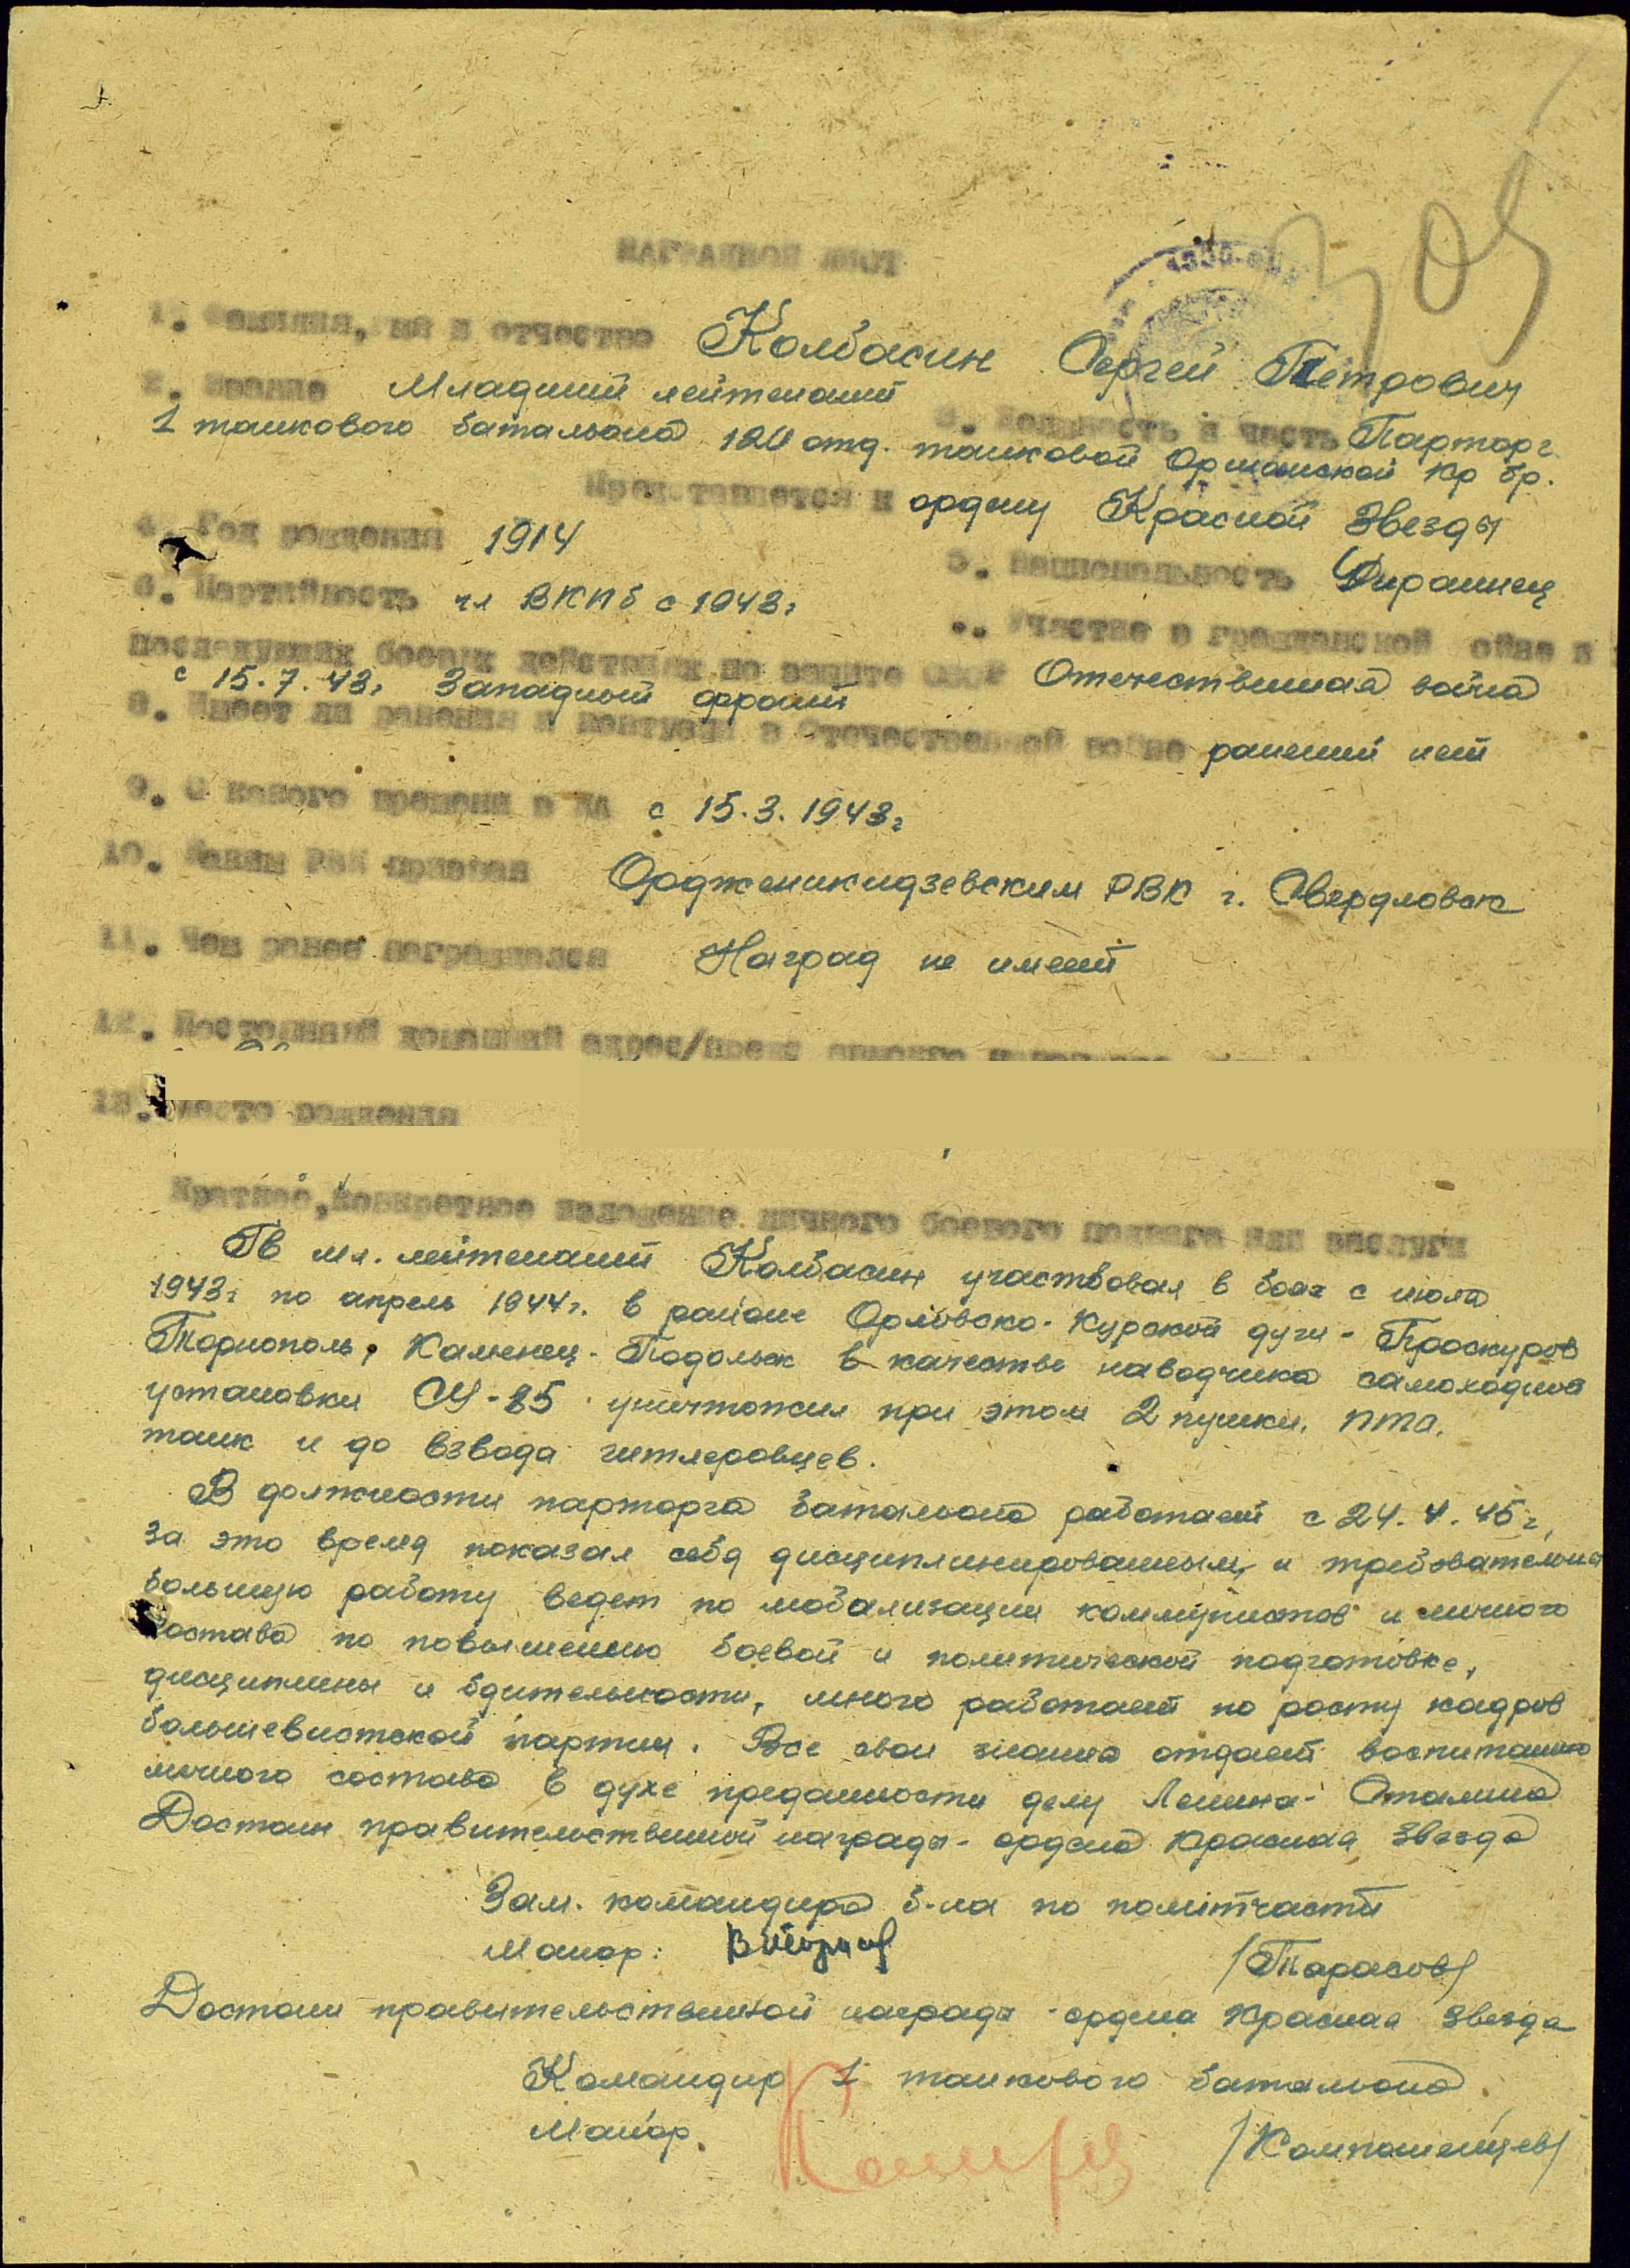 305
НАГРАДНОЙ ЛИСТ
1. Фамилия, имя и отчество Колбасин Сергей Петрович
2. Звание Младший лейтенант 3. Должность и часть Парторг
1 танкового батальона 120 отд. танковой Оршанской Кр бр.
Представляется к ордену Красной Звезды
4. Год рождения 1914 5. Национальность Украинец
6. Партийность чл ВКПб с 1943г Участие в гражданской войне и
последующих боевых действиях по защите СССР Отечественная война
с 15.7.43г Западный фронт
8. Имеет ли ранения и контузии в Отечественной войне ранений нет
9. С какого времени в КА с 15.3.1943г
10. Каким РВК призван Орджоникидзевским РВК г. Свердловск
11. Чем ранее награждался Наград не имеет
12. Постоянный домашний адрес/
13. Место рождения
Краткое, конкретное изложение личного боевого подвига или заслуги
Гв мл. лейтенант Колбасин участвовал в боях с июля
1943г по апрель 1944г. в районе Орловско-Курской дуги - Проскуров
Тарнополь, Каменец-Подольск в качестве наводчика самоходной
установки СУ-85 уничтожил при этом 2 пушки, ПТА,
танк и до взвода гитлеровцев.
В должности парторга батальона работает с 24.4.45г,
за это время показал себя дисциплинированным и требовательным
большую работу ведет по мобализации коммунистов и личного
состава по повышению боевой и политической подготовке,
дисциплины и бдительности, много работает по росту кадров
большевистской партии. Все свои знания отдает воспитанию
личного состава в духе преданности делу Ленина-Сталина
Достоин правительственной награды - ордена Красная Звезда
Зам. командира б-на по политчасти
Майор: /Тарасов/
Достоин правительственной награды - ордена Красная Звезда
Командир 1 танкового батальона
Майор /Компониейцев/